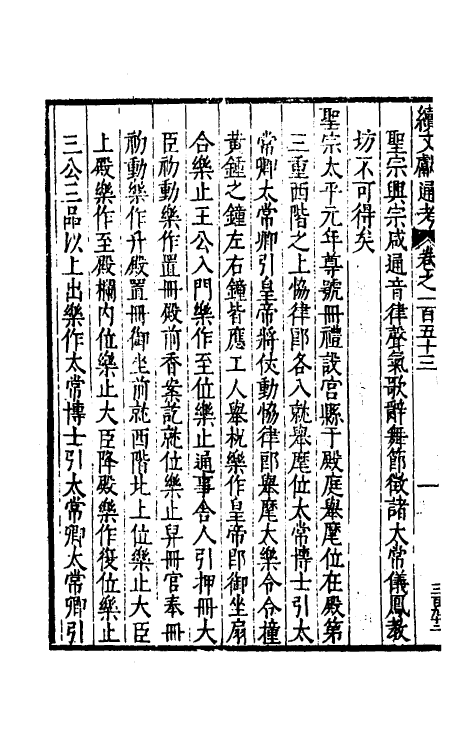 續文獻通考
卷之一百五十三
一
聖宗興宗咸通音律聲氣歌辭舞節徵諸太常儀鳳教
坊不可得矣
聖宗太平元年尊號冊禮設宮縣于殿庭舉麾位在殿第
三重西階之上協律郎各入就舉麾位太常博士引太
常卿太常卿引皇帝將仗動協律郎舉麾太樂令令撞
黃鍾之鐘左右鐘皆應工人舉柷樂作皇帝即御坐扇
合樂止王公入門樂作至位樂止通事舍人引押冊大
臣初動樂作置冊殿前香案訖就位樂止舁冊官奉冊
初動樂作升殿置冊御坐前就西階北上位樂止大臣
上殿樂作至殿欄內位樂止大臣降殿樂作復位樂止
三公三品以上出樂作太常博士引太常卿太常卿引